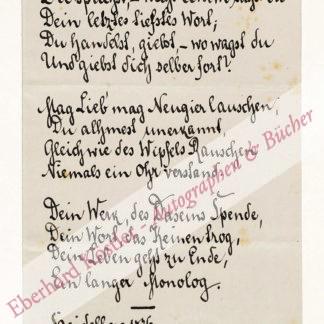 Dein letztes liebstes Wort;
Du handelst, giebst, – wo wagst du
Und giebst dich selber fort?
Mag Lieb' mag Neugier lauschen,
Du allzumeist unerkannt,
Gleich wie des Wipfels Rauschen
Niemals ein Ohr verstand.
Dein Werk, des Daseins Spende,
Dein Wort, das Keinen trog,
Dein Leben geht zu Ende,
Ein langer Monolog.
Eberhard Köstler - Autographen & Bücher